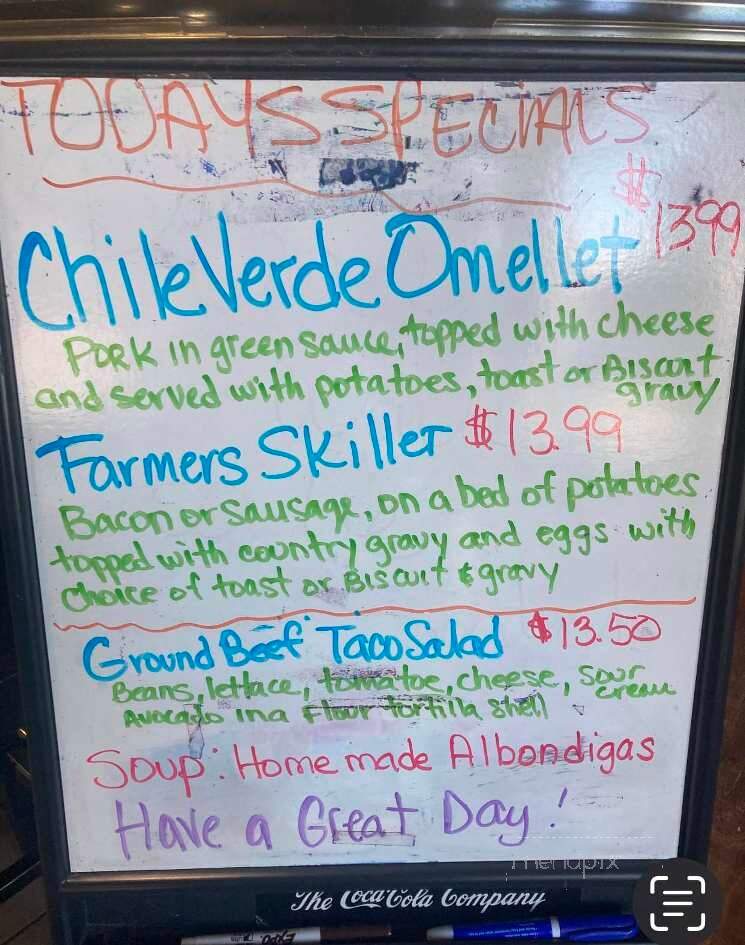 TODAYS SPECIALS
$
Chile Verde Omellet 13.99
Pork in green sauce, topped with cheese
and served with potatoes, toast or Biscuit
gravy
Farmers Skiller $13.99
Bacon or Sausage, on a bed of potatoes
topped with country gravy and eggs with
choice of toast or Biscuit & gravy
Ground Beef Taco Salad $13.50
Beans, lettace, tomatoe, cheese, sour
cream
Avocado in a Flour tortilla Shell
Soup: Home made Albondigas
Have a Great Day!
menupix
The Coca-Cola Company
EXPO